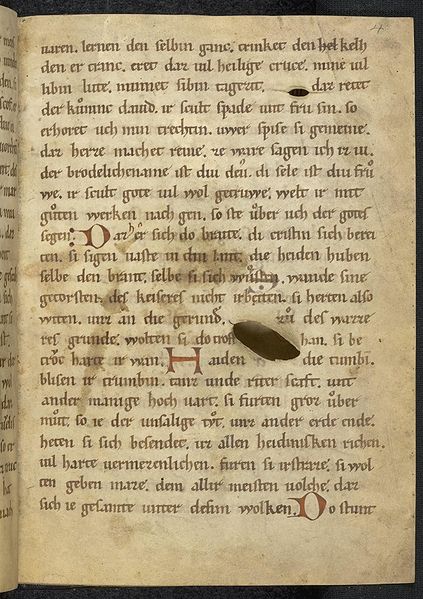 uaren. lernen den selbin ganc. trinket den hel kelh
den er tranc. eret daz uil heilige cruce. mine uil
libin lute. nuinet sibin tagezit. daz retet
der kůninc dauid. ir scult spade unt frů sin. so
erhoret uch min trechtin. uwer spise si gemeine.
daz herze machet reine. ze ware sagen ich iz iu.
der brodelichename ist diu deu. di sele ist diu frů
we. ir scult gote uil wol getruwe. welt ir mit
gůten werken nach gen. so ste uͦber uch der gotes
segen. Daz er sich do braite. di cristin sich berei
ten. si sigen uaste in diu lant. die heiden huben
selbe den brant. selbe si sich wůsten. wande sine
getorsten. des keiseres nicht irbeiten. si herten also
witen. unz an die gerund. zů des wazze
res grunde. wolten si do trof han. si be
troc harte ir wan. Haiden die tumbī.
blisen ir trumbin. tanz unde riter scaft. unt
ander manige hoch uart. si furten groz uͦber
můt. so ie der unsalige tůt. unz ander erde ende.
heten si sich besendet. uz allen heidinisken richen.
uil harte uermezenlichen. furen si irstraze. si wol
ten geben maze. dem allir meisten uolche. daz
sich ie gesamte unter desim wolken. Do stunt